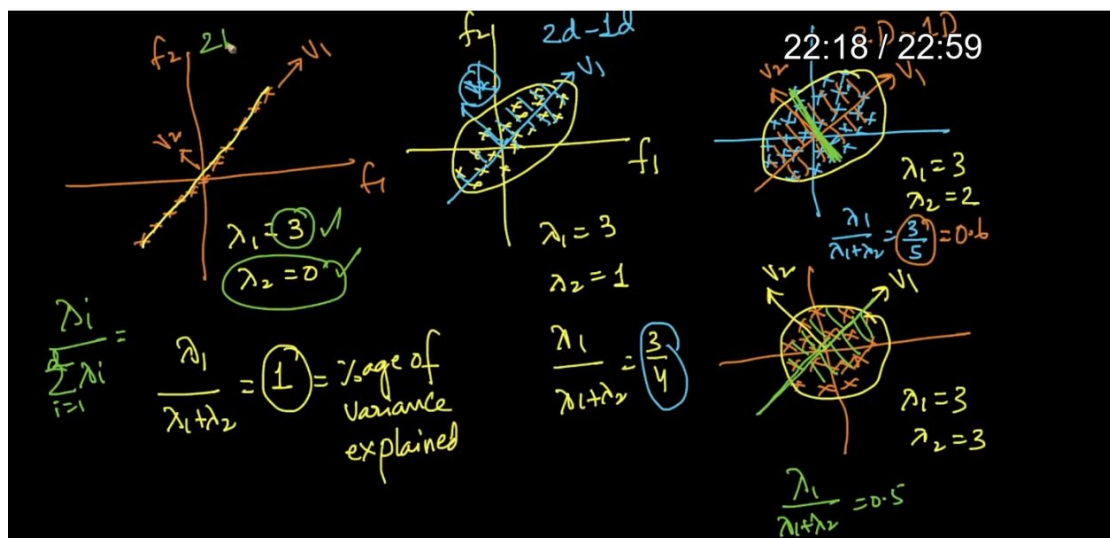 f₂ 2
V₁
V₂
f₁
λ₁ = 3 ✓
λ₂ = 0 ✓
λi / Σ λi =
d
i=1
λ₁ / λ₁+λ₂ = 1 = %age of
variance
explained
f₂ 2d-1d
V₁
f₁
λ₁ = 3
λ₂ = 1
λ₁ / λ₁+λ₂ = 3/4
3D-1D
22:18 / 22:59
V₂
V₁
λ₁ = 3
λ₂ = 2
λ₁ / λ₁+λ₂ = 3/5 = 0.6
V₂
V₁
λ₁ = 3
λ₂ = 3
λ₁ / λ₁+λ₂ = 0.5